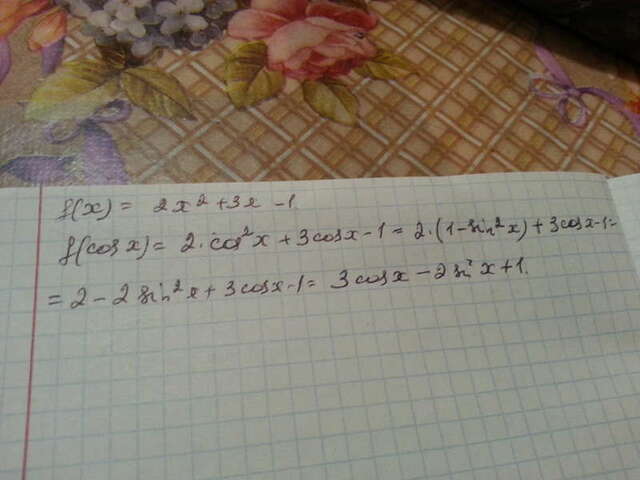 f(x) = 2x² + 3x - 1.
f(cos x) = 2·cos²x + 3cosx - 1 = 2·(1 - sin²x) + 3cosx - 1 =
= 2 - 2sin²x + 3cosx - 1 = 3cosx - 2sin²x + 1.